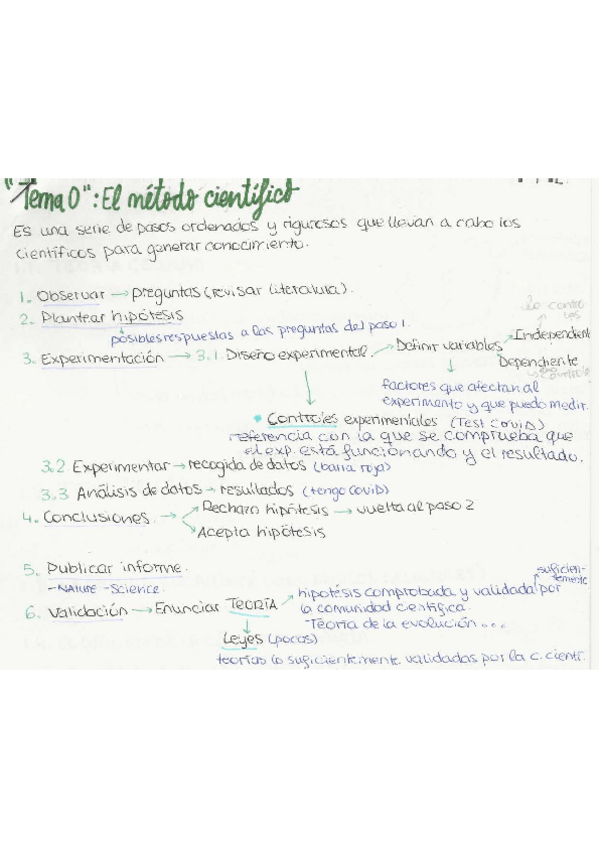 "Tema 0": El método científico
Es una serie de pasos ordenados y rigurosos que llevan a cabo los
científicos para generar conocimiento.
1. Observar → preguntas (revisar literatura).
2. Plantear hipótesis
posibles respuestas a las preguntas del paso 1.
lo contro
los
3. Experimentación → 3.1. Diseño experimental → Definir variables → Independient
Dependiente
factores que afectan al
experimento y que puedo medir.
• Controles experimentales (Test covid)
referencia con la que se comprueba que
el exp. está funcionando y el resultado.
3.2 Experimentar → recogida de datos (barra roja)
3.3 Análisis de datos → resultados (tengo covid)
4. Conclusiones → Rechazo hipótesis → vuelta al paso 2
Acepta hipótesis
5. Publicar informe.
- NATURE - Science.
suficien-
temente
6. Validación → Enunciar TEORÍA → hipótesis comprobada y validada por
la comunidad científica.
Teoría de la evolución...
Leyes (pocas)
teorías lo suficientemente validadas por la c. cientí.